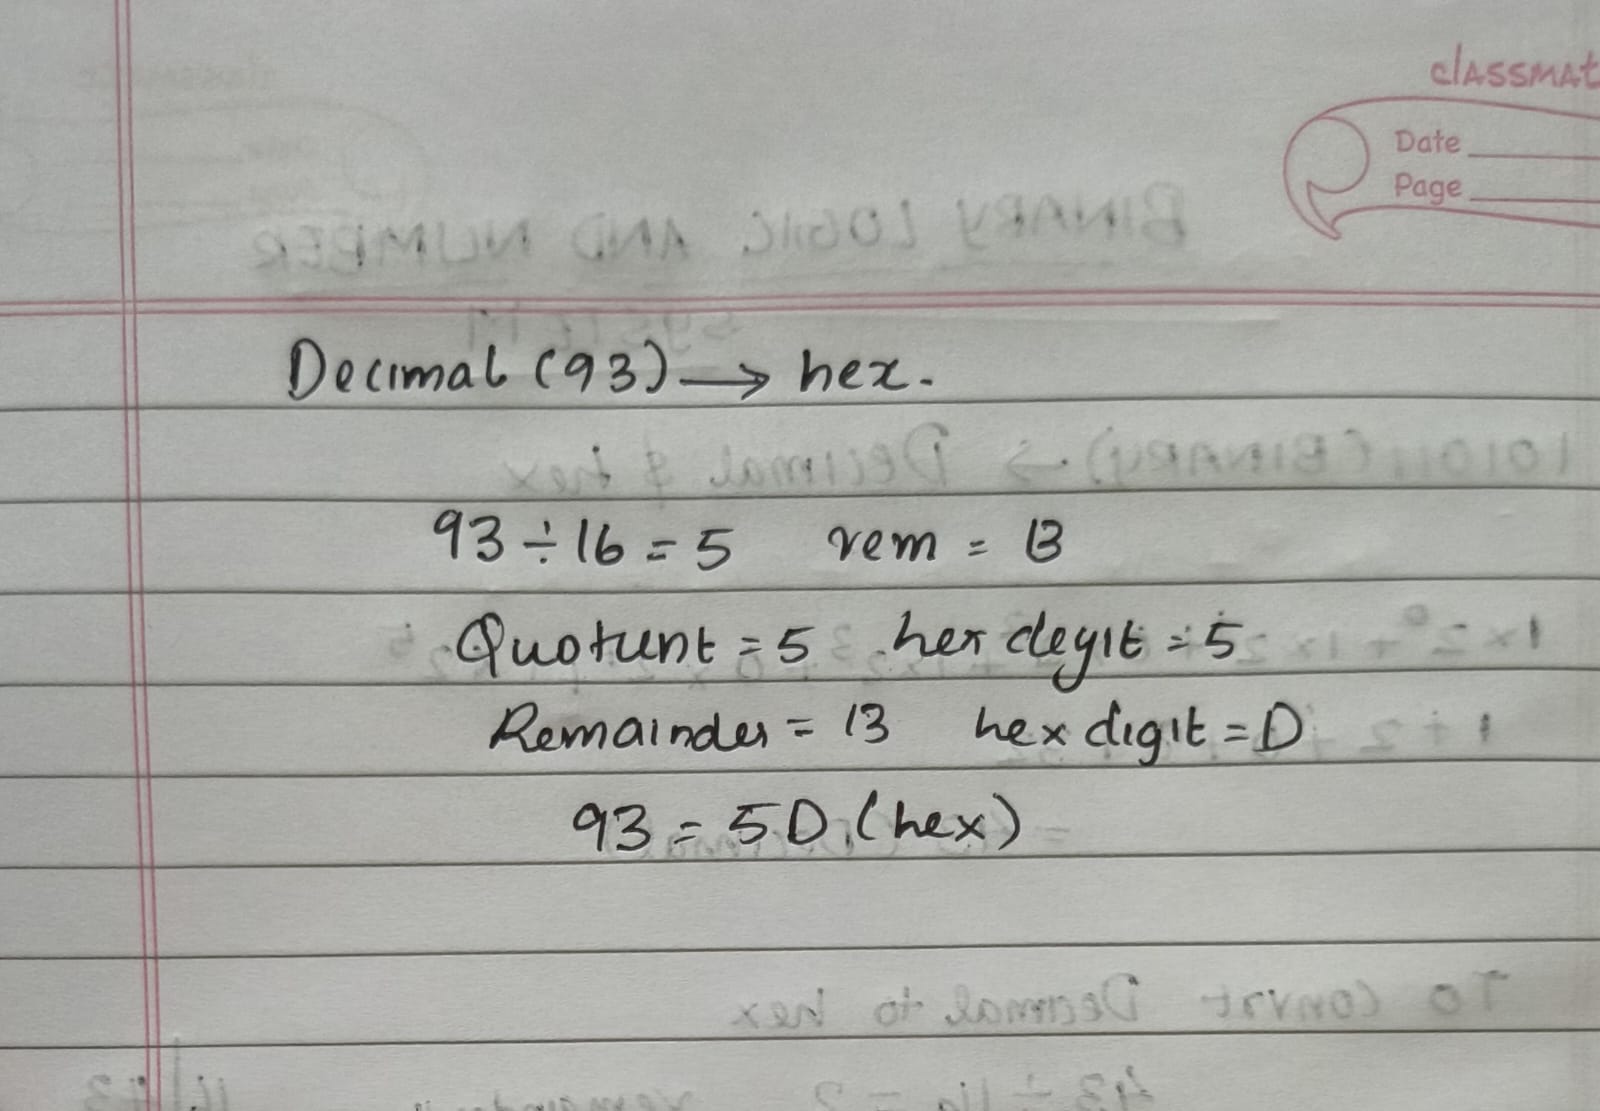 classmat
Date
Page
Decimal (93) → hex.
93 ÷ 16 = 5 rem = 13
Quotunt = 5 hex deyit = 5
Remainder = 13 hex digit = D
93 = 5D (hex)